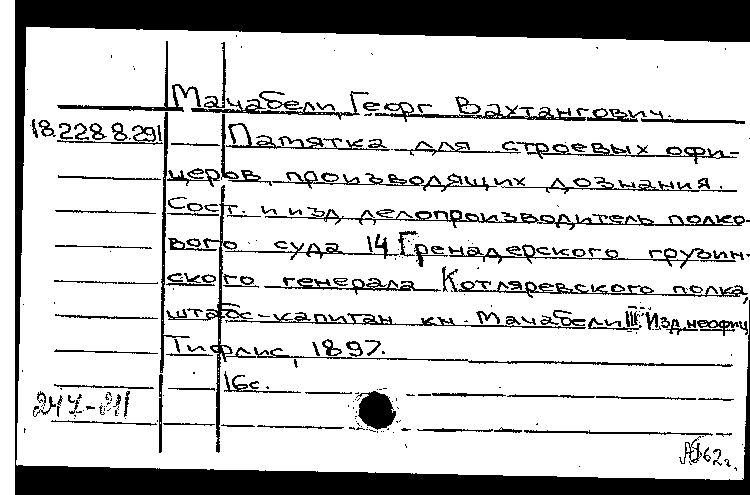 Мачабели, Георг Вахтангович.
18.228.8.291 Памятка для строевых офи-
церов, производящих дознания.
Сост. и изд. делопроизводитель полко-
вого суда 14 Гренадерского грузин-
ского генерала Котляревского полка,
штабс-капитан кн. Мачабели III. Изд. неофиц
Тифлис, 1897.
16с.
247-211
62г.